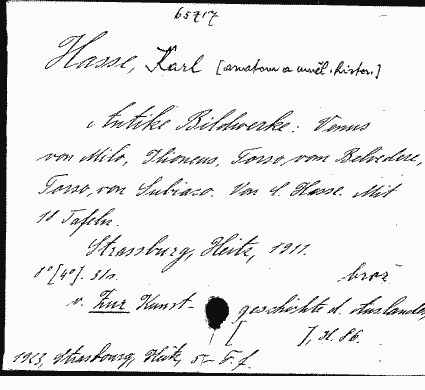 65717
Hasse, Karl [anatom a uměl. histor.]
Antike Bildwerke: Venus
von Milo, Ilioneus, Torso vom Belvedere,
Torso von Subiaco. Von C. Hasse. Mit
10 Tafeln.
Strassburg, Heitz, 1911.
8° [4°]. 31s. brož
v. Zur Kunst- geschichte d. Auslandes,
[ ], H. 86.
Strasbourg, Heitz,